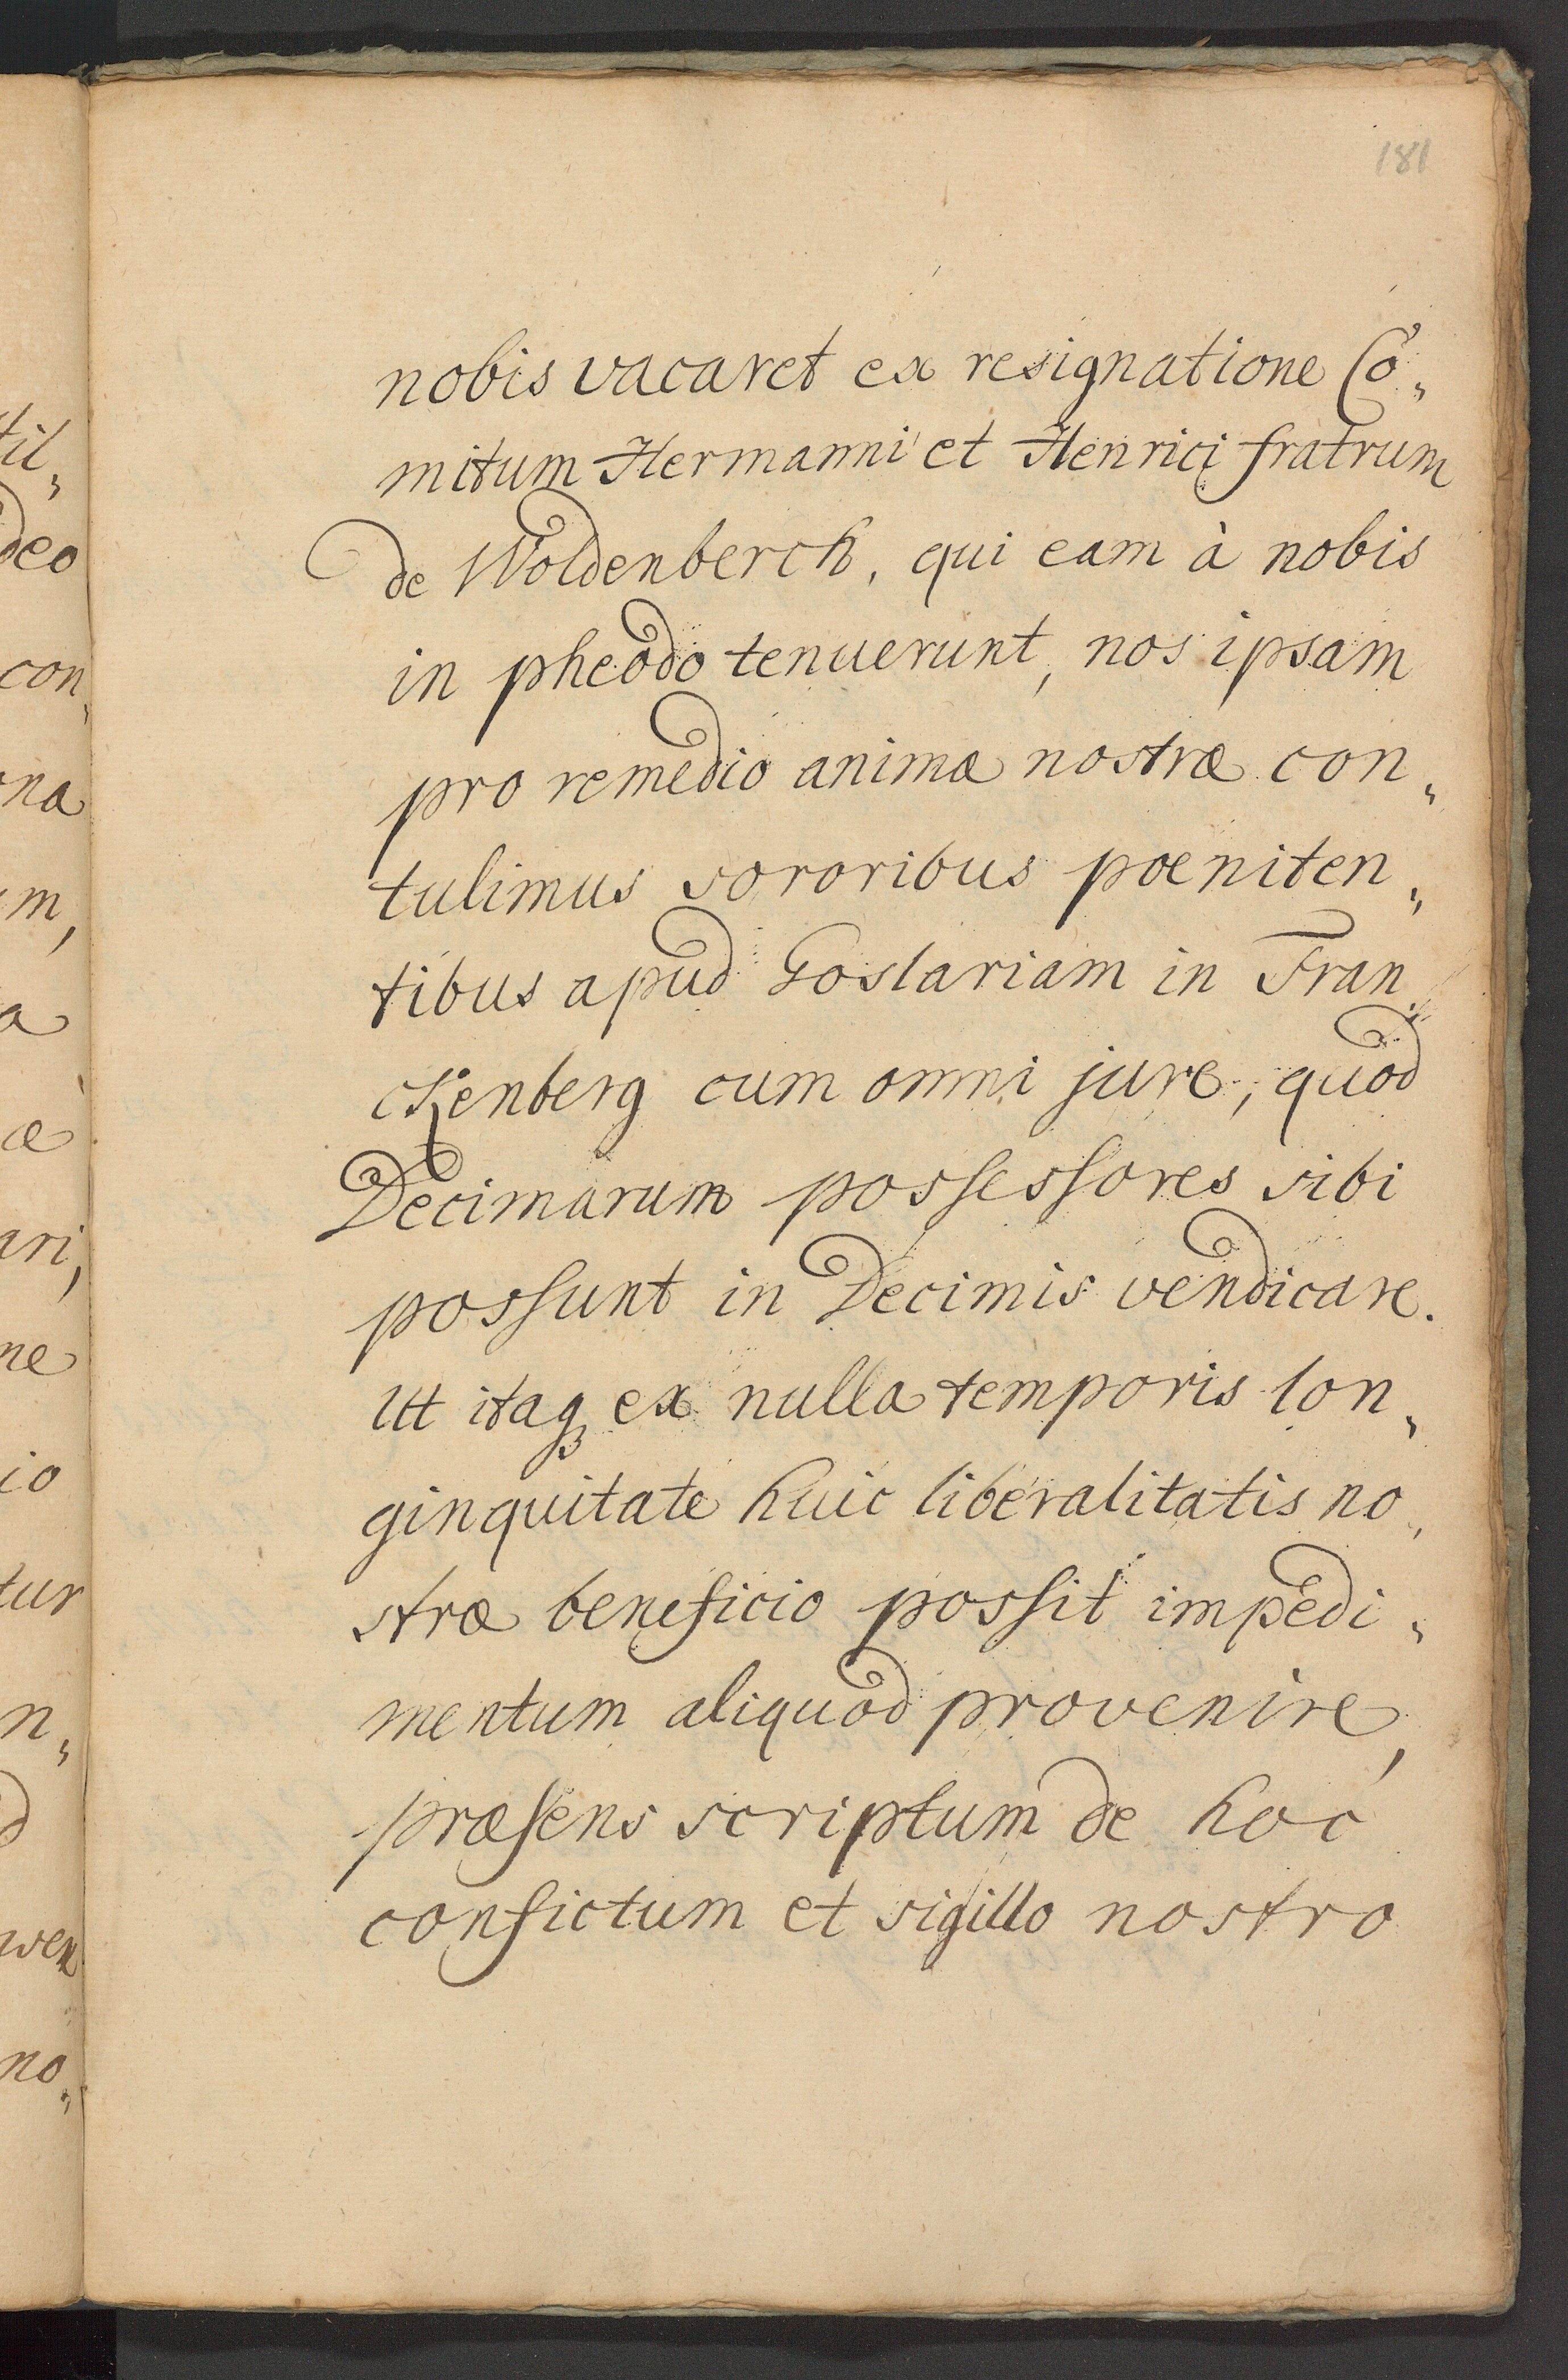 181
nobis vacaret ex resignatione Co„
mitum Hermanni et Henrici fratrum
de Woldenberch, qui eam à nobis
in pheodo tenuerunt, nos ipsam
pro remedio animæ nostræ con„
tulimus sororibus pœniten„
tibus apud Goslariam in Fran„
ckenberg cum omni jure, quod
Decimarum possessores sibi
possunt in Decimis vendicare.
Ut itaq₃ ex nulla temporis lon„
ginquitate huic liberalitatis no„
stræ beneficio possit impedi„
mentum aliquod provenire,
præsens scriptum de hoc
confictum et sigillo nostro
til„
deo
con„
na
m,
a
æ
ari,
ne
io
tur
n„
d
wen
no„